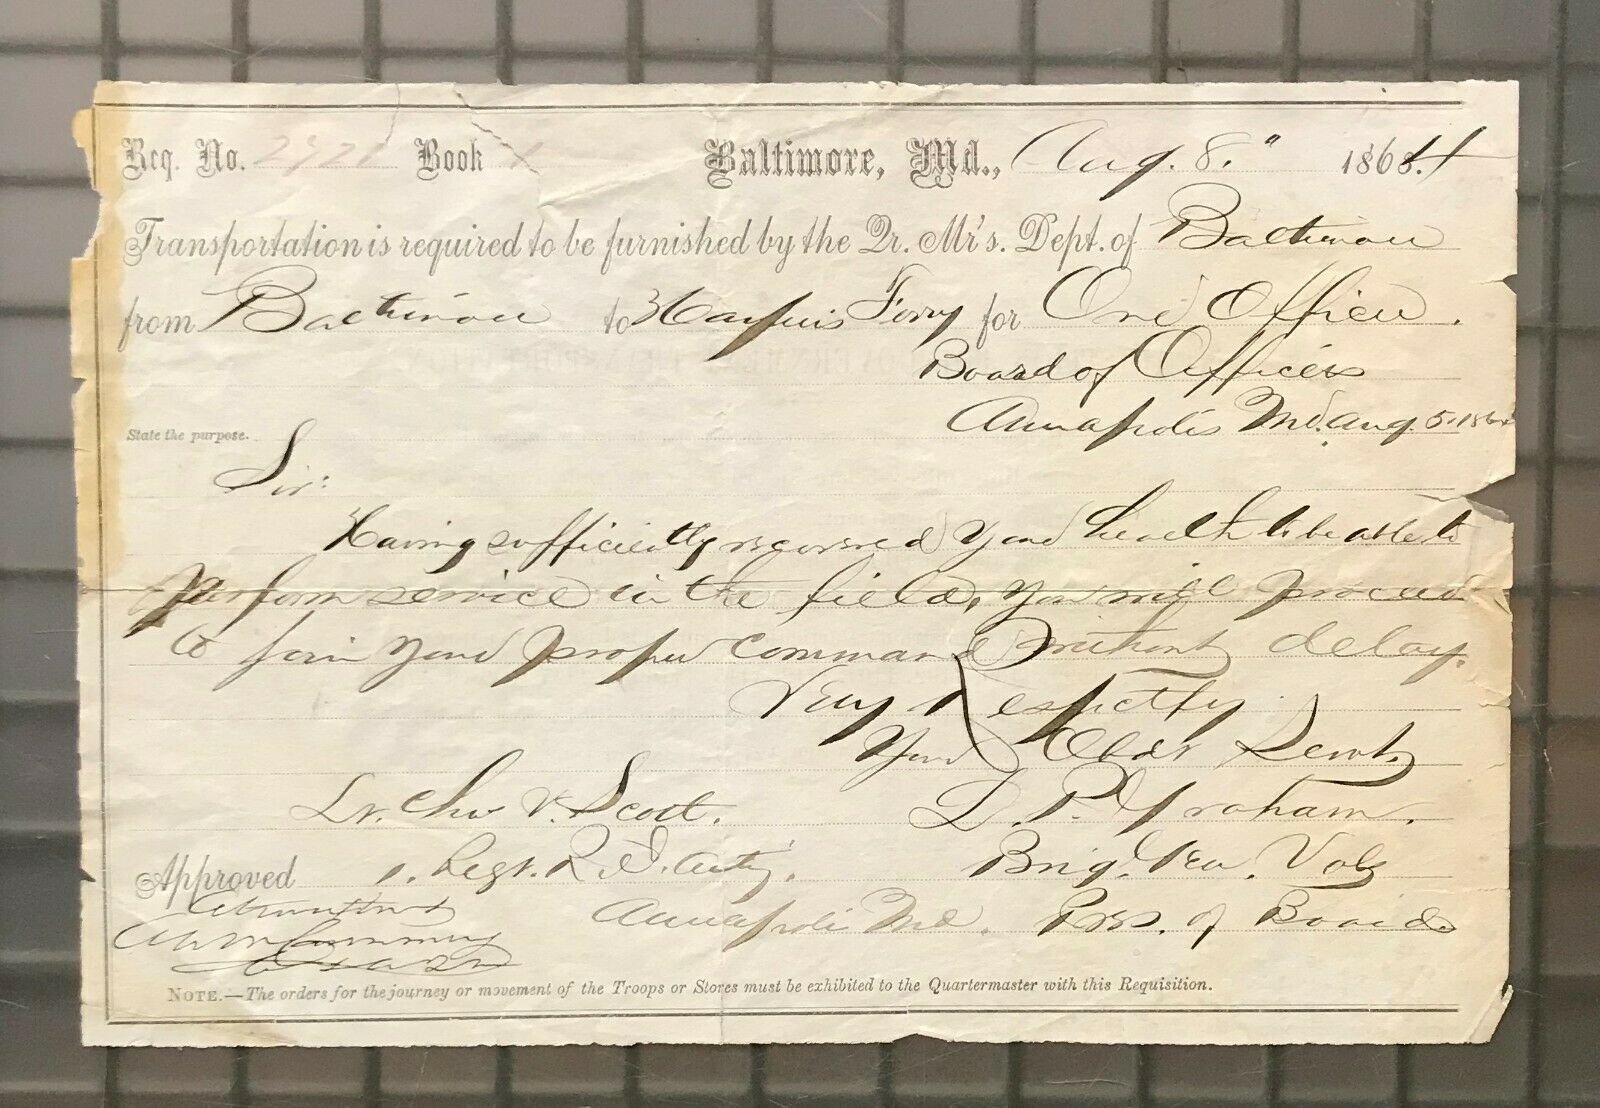 Req. No. Book 1 Baltimore, Md., Aug. 8." 1864
Transportation is required to be furnished by the Qr. Mr's. Dept. of Baltimore
from Baltimore to Harpers Ferry for One Officer.
Board of Officers
Annapolis Md. Aug. 5. 1864
State the purpose.
Sir:
Having sufficiently recovered your health to be able to
perform service in the field, you will proceed
to join your proper command without delay.
Very Respectfly
Your Obdt Servt,
Lt. Chas V. Scott. L. P. Graham.
Approved 1. Regt. R. I. Arty. Brig. Gen. Vols
Annapolis Md. Pres. of Board.
NOTE.—The orders for the journey or movement of the Troops or Stores must be exhibited to the Quartermaster with this Requisition.